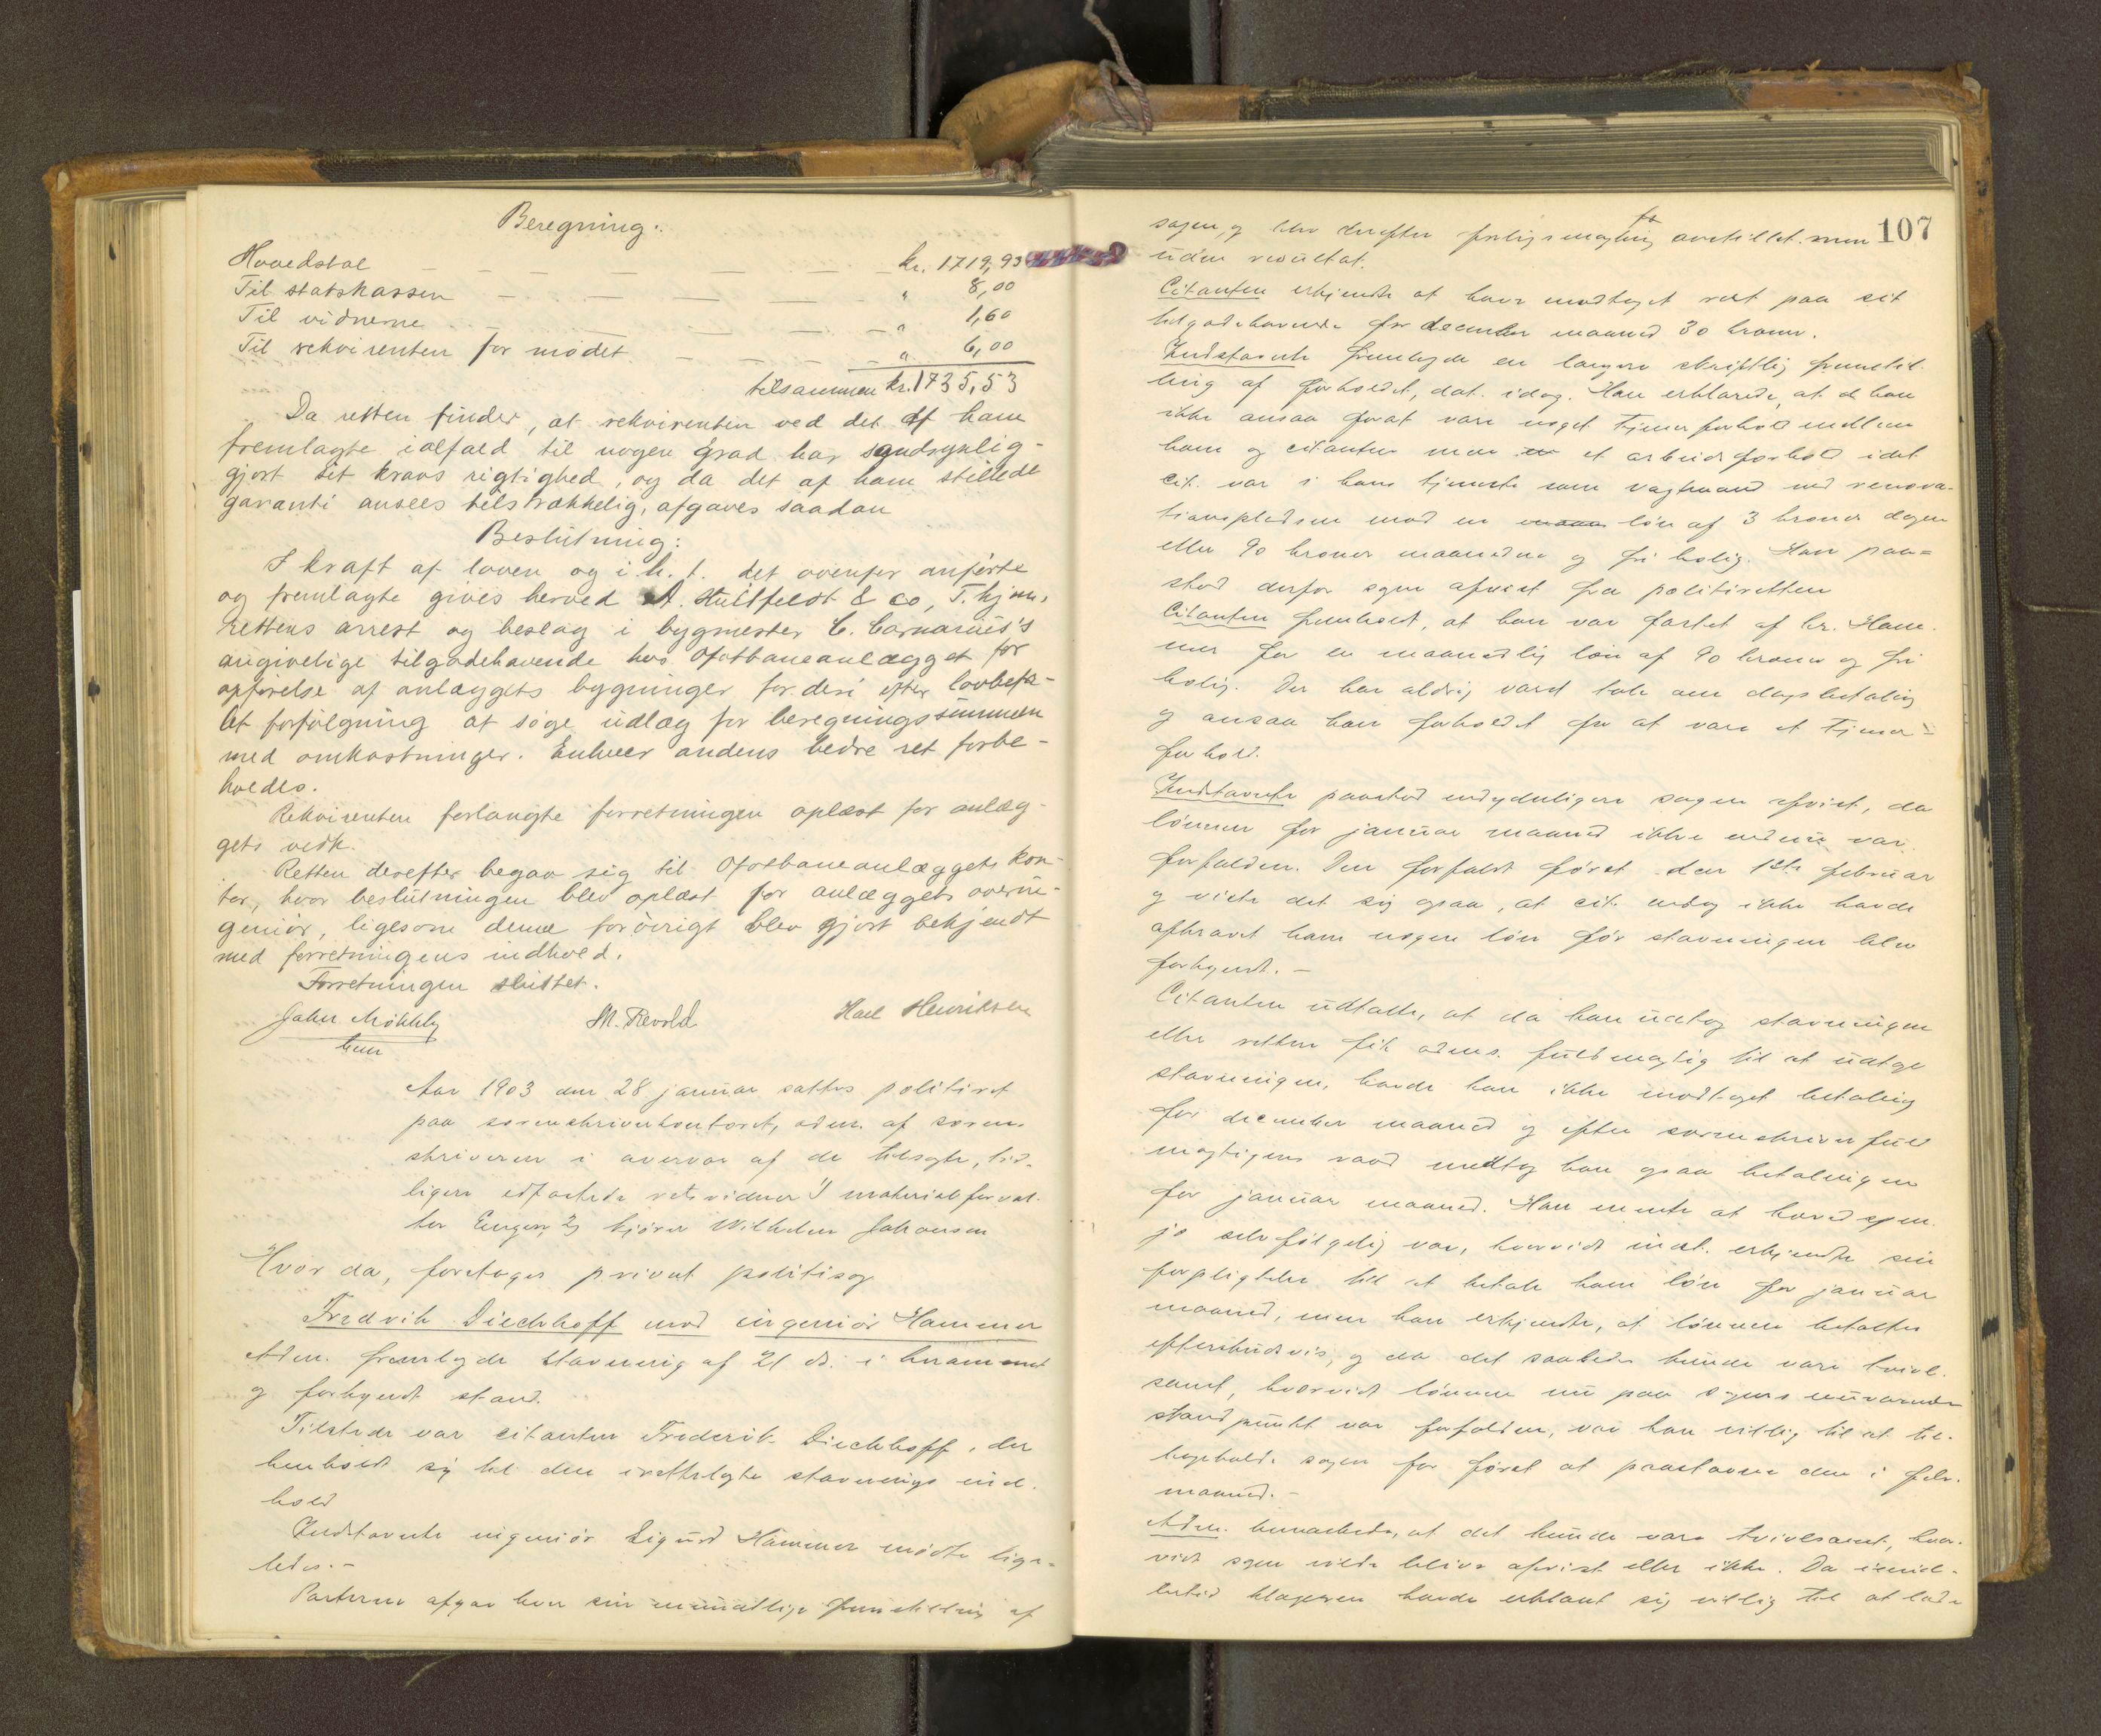 Beregning:
Hovedstol — — — — — kr. 1719,93
Til statskassen — — — — — " 8,00
Til vidnerne — — — — " 1,60
Til rekvirenten for mødet — — — — " 6,00
tilsammen kr. 1735,53
Da retten finder, at rekvirenten ved det af ham
fremlagte ialfald til nogen grad har sandsynlig-
gjort sit kravs rigtighed, og da det af ham stillede
garanti ansees tilstrækkelig, afgaves saadan
Beslutning:
I kraft af loven og i h. t. det ovenfor anførte
og fremlagte gives herved A. Huitfeldt & co, T.hjem,
rettens arrest og beslag i bygmester C. Carnarius's
angivelige tilgodehavende hos Ofotbaneanlægget for
opførelse af anlæggets bygninger for deri efter lovbefa-
let forfølgning at søge udlæg for beregningssummen
med omkostninger. Enhver andens bedre ret forbe-
holdes.
Rekvirenten forlangte forretningen oplæst for anlæg-
gets vedk.
Retten derefter begav sig til Ofotbaneanlæggets kon-
tor, hvor beslutningen blev oplæst for anlæggets overin-
geniør, ligesom denne forøvrigt blev gjort bekjendt
med forretningens indhold.
Forretningen sluttet.
M. Revold Karl Henriksen
Aar 1903 den 28 januar sattes politiret
paa sorenskriverkontoret, adm. af soren-
skriveren i overvær af de tilsagte, tid-
ligere edfæstede retsvidner 1) materialforval-
ter Engen, 2) kjører Wilhelm Johansen
Hvor da, foretoges privat politisag
Fredrik Diechhoff mod ingeniør Hammer
Adm. fremlagde stævning af 21 ds. i brammet
og forkyndt stand.
Tilstede var citanten Frederik Diechhoff, der
henholdt sig til den irettelagte stævnings ind-
hold
Indstævnte ingeniør Sigurd Hammer mødte lige-
ledes.-
Parterne afgav hver sin mundtlige fremstilling af
107
sagen, og blev derefter forligsmægling forsøgt men
uden resultat.
Citanten erkjendte at have modtaget rest paa sit
tilgodehavende for december maaned 30 kroner.
Indstævnte fremlagde en længere skriftlig fremstil-
ling af forholdet, dat. idag. Han erklærede, at han
ikke ansaa forat være noget tjenerforhold mellem
ham og citanten men et arbeidsforhold idet
cit. var i hans tjeneste som vagtmand ved renova-
tionspladsen mod en løn af 3 kroner dagen
eller 90 kroner maaneden og fri bolig. Han paa-
stod derfor sagen afvist fra politiretten
Citanten fremholdt, at han var fæstet af hr. Ham-
mer for en maanedlig løn af 90 kroner og fri
bolig. Der har aldrig været tale om dagsbetaling
og ansaa han forholdet for at være et tjener-
forhold.
Indstævnte paastod endydeligere sagen afvist, da
lønnen for januar maaned ikke endnu var
forfalden. Den forfaldt først den 1ste februar
og viste det sig ogsaa, at cit. endog ikke havde
afkrævet ham nogen løn før stævningen blev
forkyndt. —
Citanten udtalte, at da han udtog stævningen
eller rettere fik adms. fuldmægtig til at udtage
stævningen, havde han ikke modtaget betaling
for december maaned og efter sorenskriverfuld-
mægtigens raad medtog han ogsaa betalingen
for januar maaned. Han mente at hovedsagen
jo selvfølgelig var, hvorvidt indst. erkjendte sin
forpligtelse til at betale ham løn for januar
maaned, men han erkjendte, at lønnen betaltes
efterskudsvis, og da det saaledes kunde være tvivl-
samt, hvorvidt lønnen nu paa sagens nuværende
standpunkt var forfalden, var han villig til at til-
bageholde sagen for først at paastævne den i febr.
maaned. —
Adm. bemærkede, at det kunde være tvivlsomt, hvor-
vidt sagen vilde blive afvist eller ikke. Da imid-
lertid klageren havde erklæret sig villig til at lade